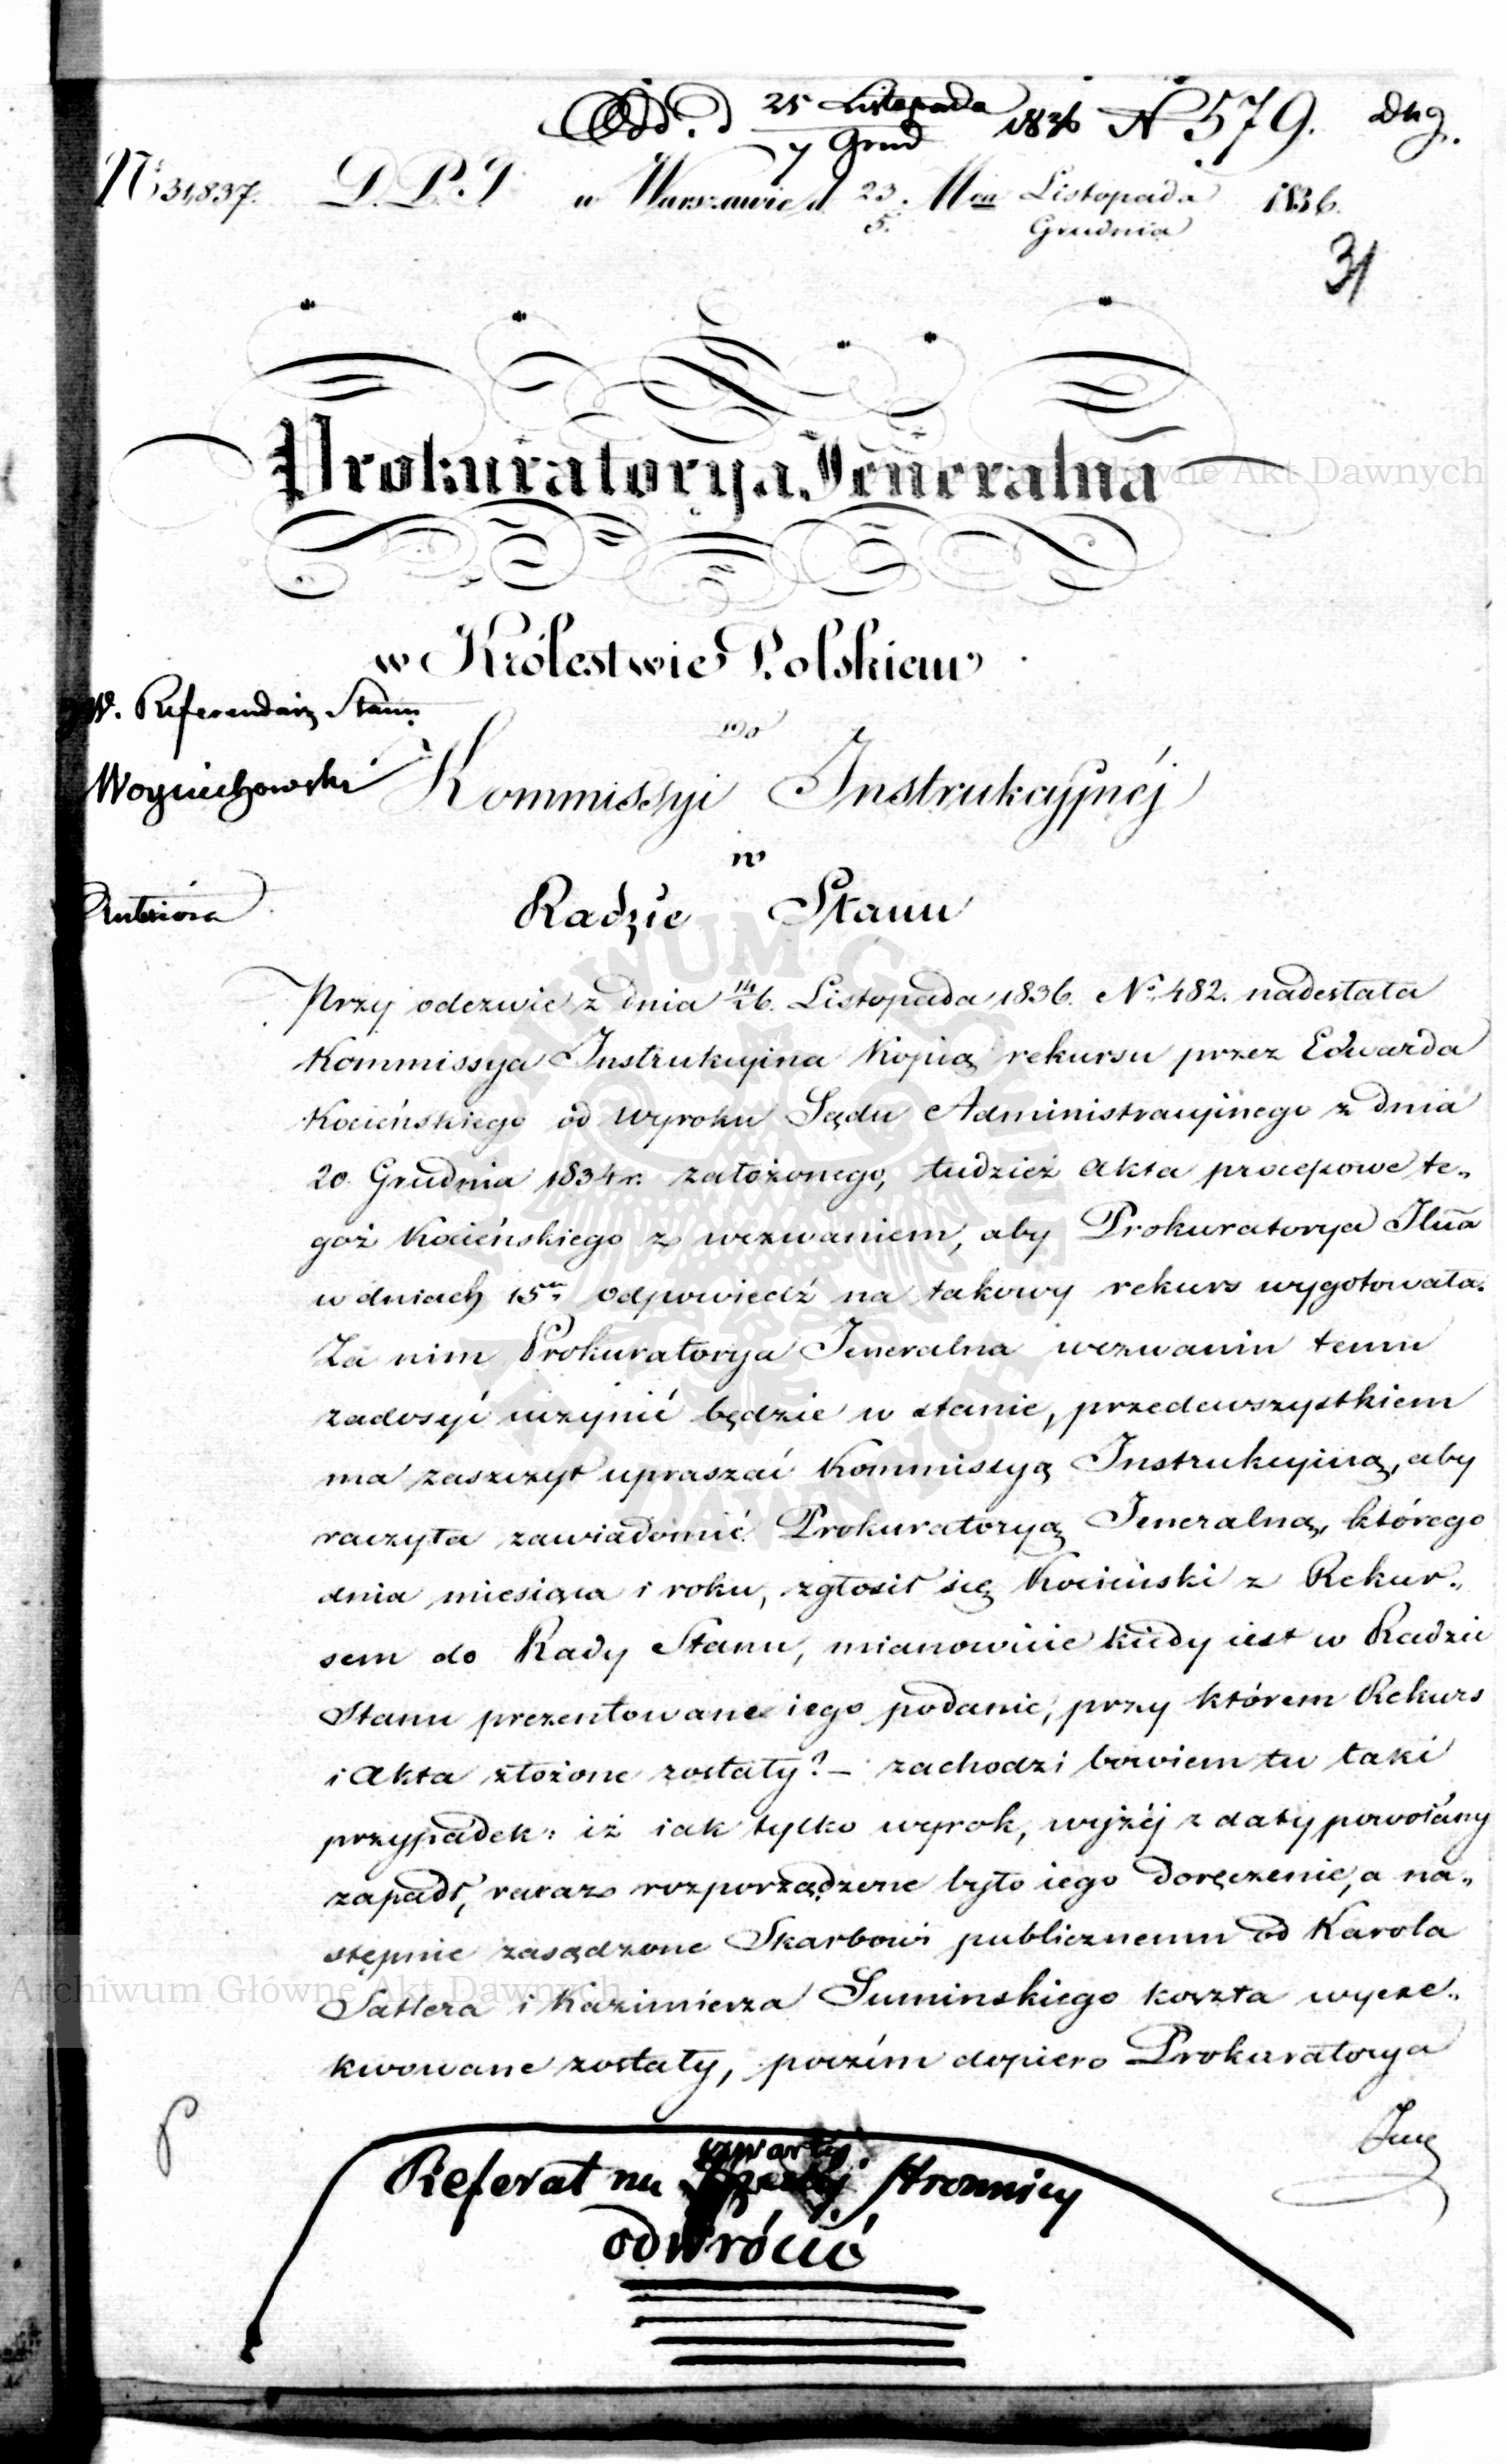 Odd. d 25 Listopada / 7 Grud 1836 N 579. Dug.
N 31,837. D.P.I w Warszawie d. 23/5. Mca Listopada/Grudnia 1836.
31
Prokuratorya Jeneralna
w Królestwie Polskiem
W. Referendarz Stanu
Woyciechowski
Anteriora
Do
Kommissyi Instrukcyjnéj
w
Radzie Stanu
Przy odezwie z dnia 14/26. Listopada 1836. No. 482. nadesłała
Kommissya Instrukcyina kopią rekursu przez Edwarda
Kocieńskiego od wyroku Sądu Administracyinego z dnia
20 Grudnia 1834 r. założonego, tudzież akta processowe te„
goż Kocieńskiego z wezwaniem, aby Prokuratorya Jlna
w dniach 15tu odpowiedź na takowy rekurs wygotowała.
Za nim Prokuratorya Jeneralna wezwaniu temu
zadosyć uczynić będzie w stanie, przedewszystkiem
ma zaszczyt upraszać Kommissyą Instrukcyiną, aby
raczyła zawiadomić Prokuratoryą Jeneralną, którego
dnia miesiąca i roku, zgłosił się Kocieński z Rekur„
sem do Rady Stanu, mianowicie kiedy iest w Radzie
Stanu prezentowane iego podanie, przy którem Rekurs
i Akta złożone zostały? – zachodzi bowiem tu taki
przypadek: iż iak tylko wyrok, wyżéj z daty powołany
zapadł, zaraz rozporządzone było iego doręczenie, a na„
stępnie zasądzone Skarbowi publicznemu od Karola
Satlera i Kazimierza Suminskiego koszta wyexe„
kwowane zostały, poczém dopiero Prokuratorya
Jne
Referat na czwartéj stronnicy
odwrócić
Archiwum Główne Akt Dawnych
Archiwum Główne Akt Dawnych
ARCHIWUM GŁÓWNE AKT DAWNYCH